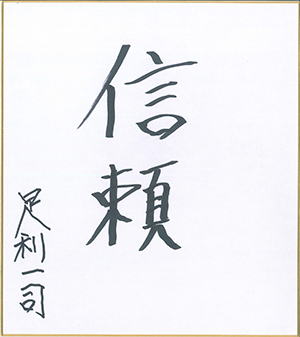 信頼
足利一司